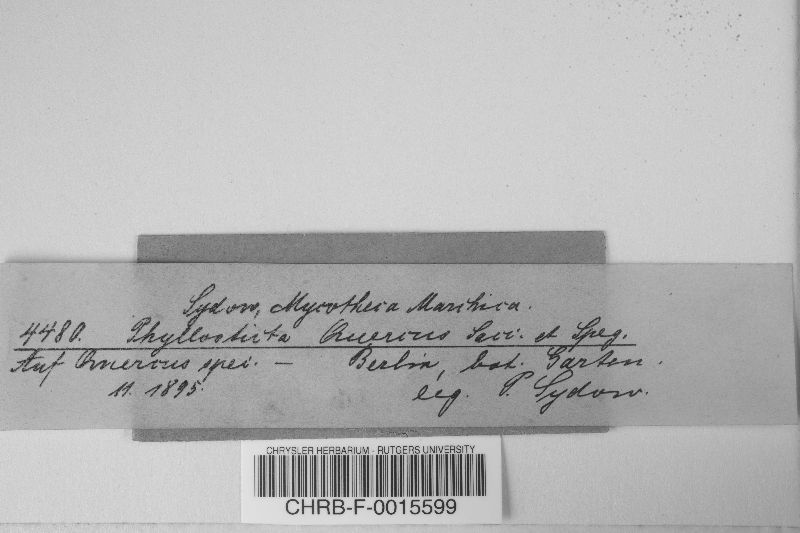 Sydow, Mycotheca Marchica.
4480. Phyllosticta Quercus Sacc. et Speg.
Auf Quercus spec. — Berlin, bot. Garten.
11. 1895. leg. P. Sydow.
CHRYSLER HERBARIUM - RUTGERS UNIVERSITY
CHRB-F-0015599